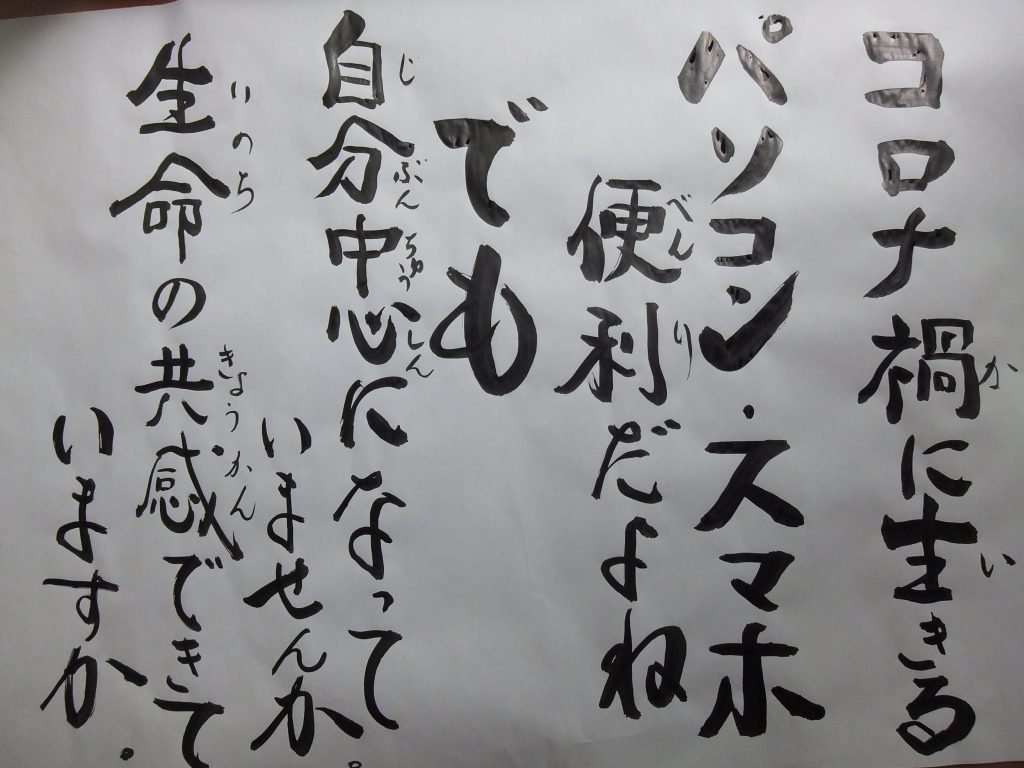 コロナ禍に生きる
パソコン・スマホ
便利だよね
でも
自分中心になって
いませんか。
生命の共感できて
いますか.
か
い
べんり
じぶんちゅうしん
いのち
きょうかん